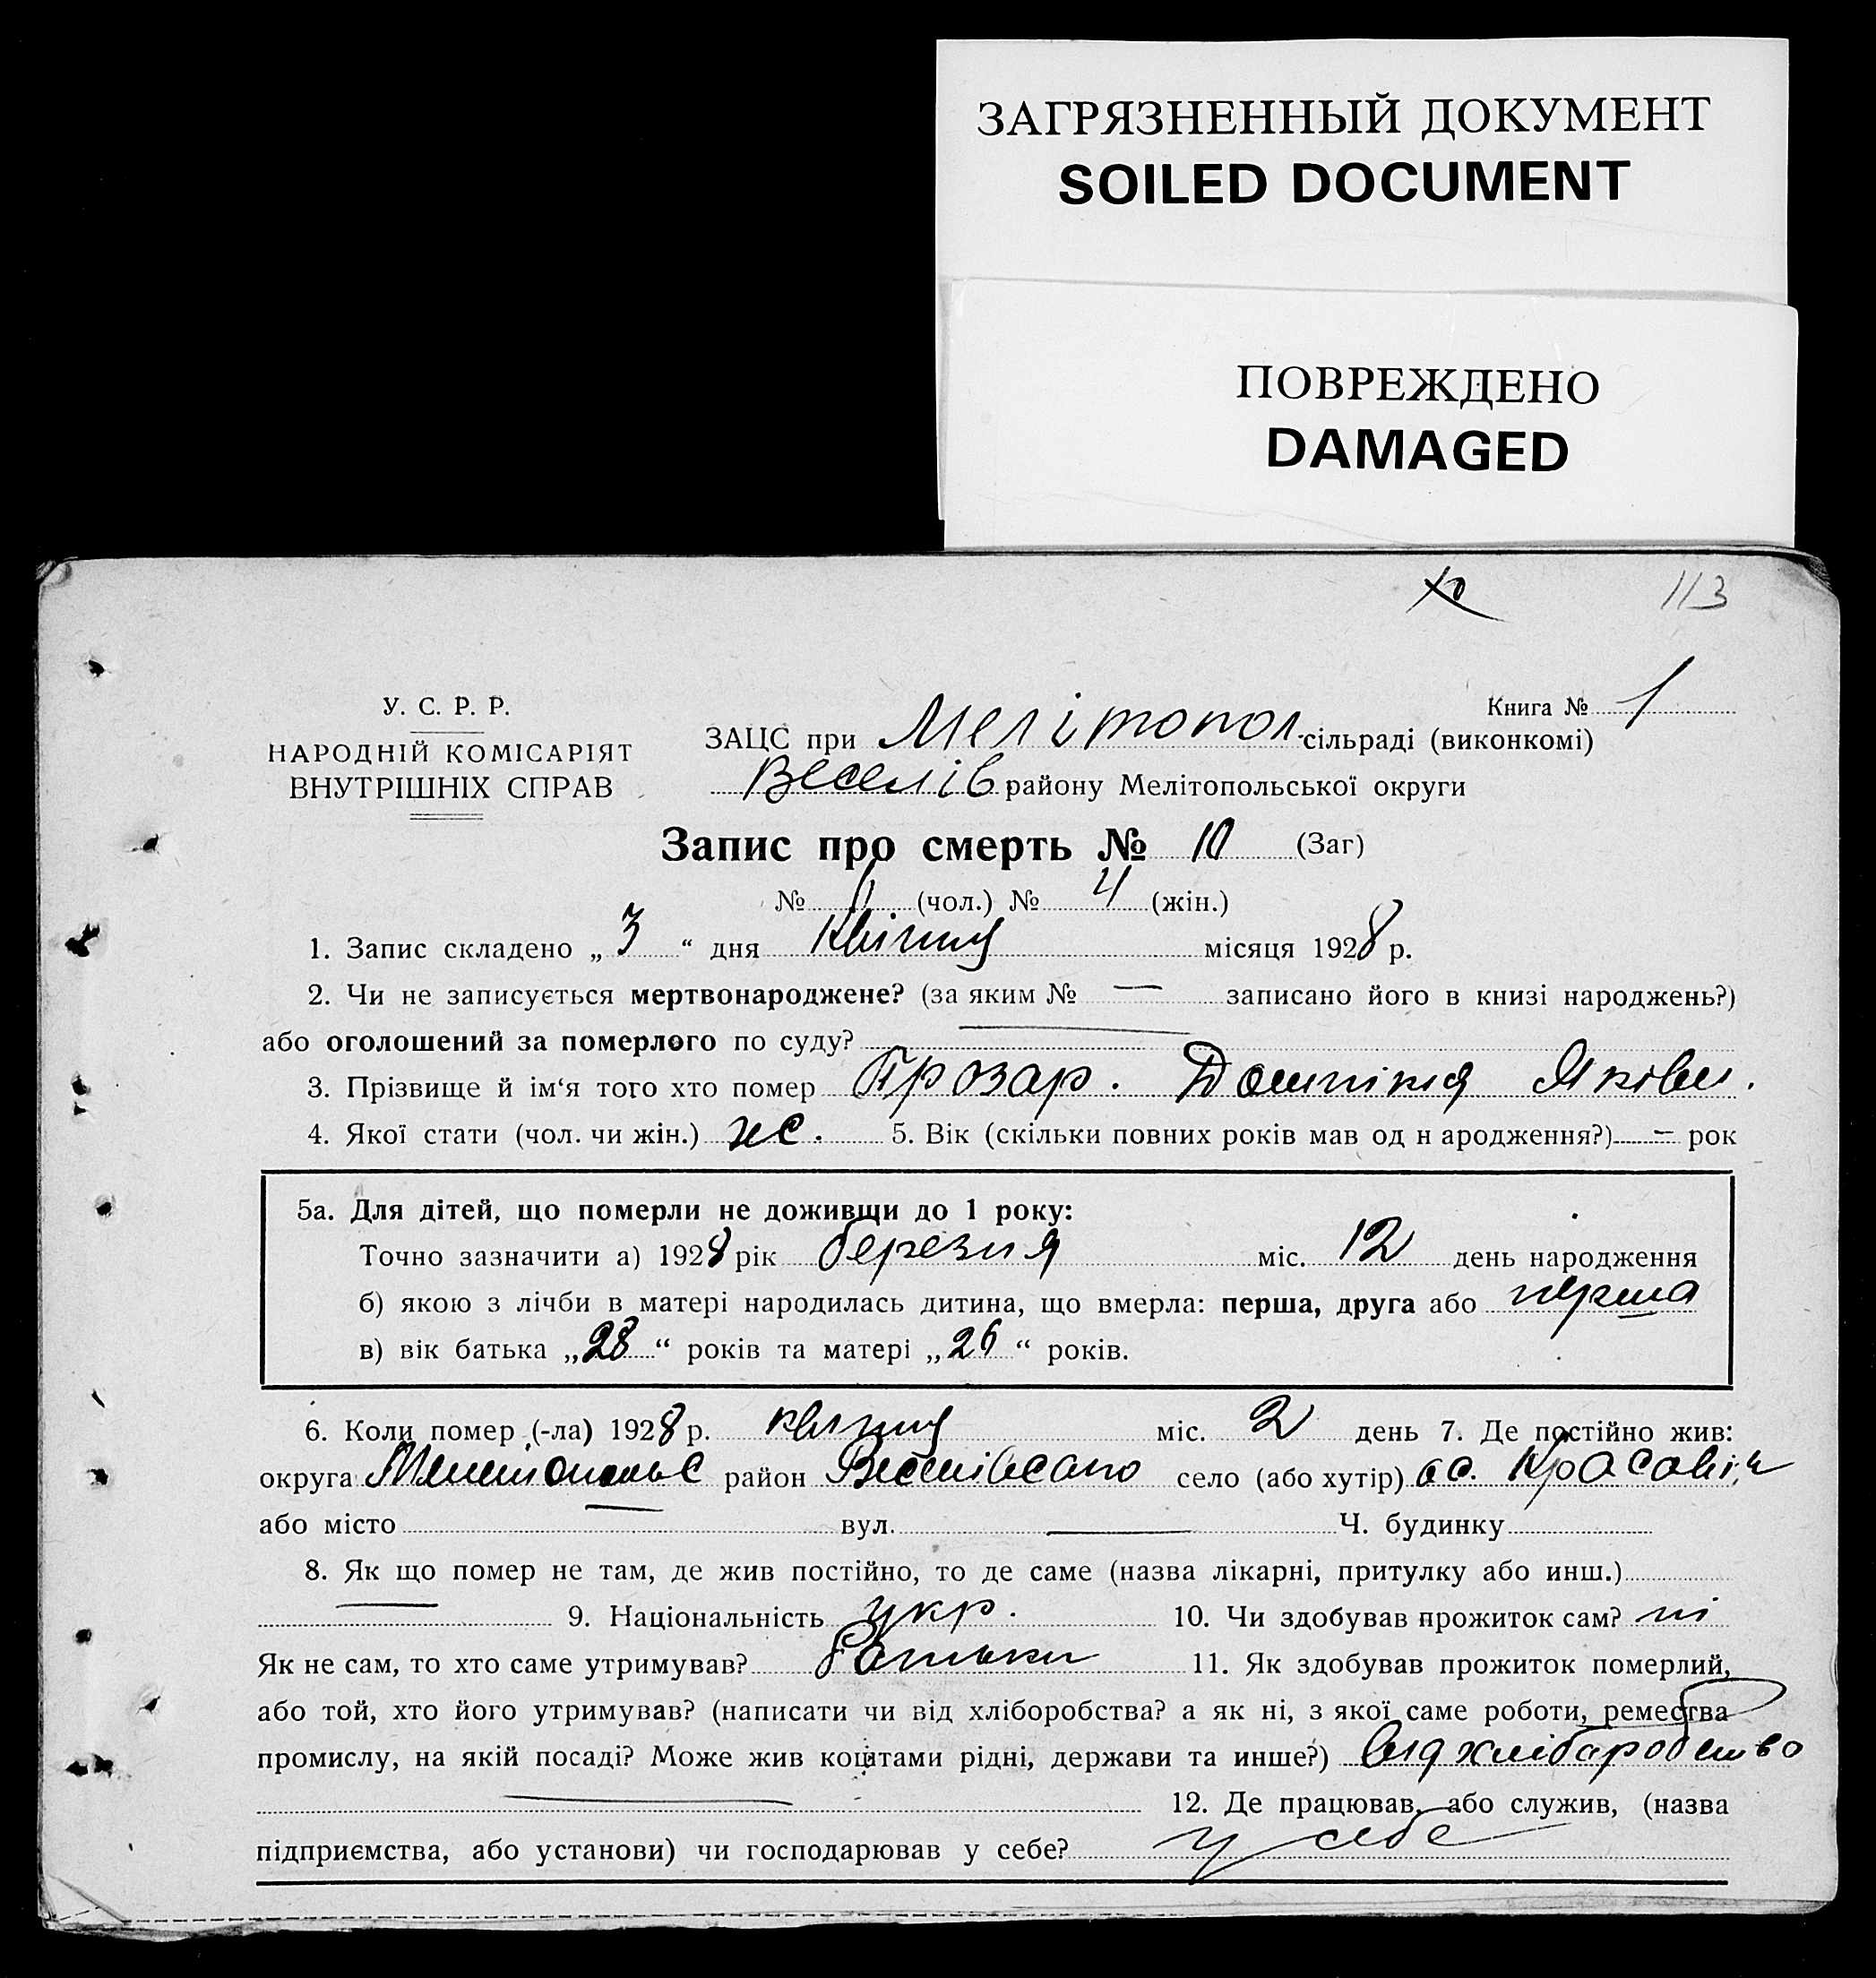 ЗАГРЯЗНЕННЫЙ ДОКУМЕНТ
SOILED DOCUMENT
ПОВРЕЖДЕНО
DAMAGED
113
У. С. Р. Р.
НАРОДНІЙ КОМІСАРІЯТ
ВНУТРІШНІХ СПРАВ
Книга № 1
ЗАЦС при Мелітопол сільраді (виконкомі)
Веселів району Мелітопольської округи
Запис про смерть № 10 (Заг)
№ (чол.) № 4 (жін.)
1. Запис складено „ 3 “ дня Квітня місяця 1928 р.
2. Чи не записується мертвонароджене? (за яким № — записано його в книзі народжень?)
або оголошений за померлого по суду? —
3. Прізвище й ім‘я того хто помер Яківн.
4. Якої стати (чол. чи жін.) жс. 5. Вік (скільки повних років мав од н ародження?) — рок
5а. Для дітей, що померли не доживщи до 1 року:
Точно зазначити а) 1928 рік березня міс. 12 день народження
б) якою з лічби в матері народилась дитина, що вмерла: перша, друга або перша
в) вік батька „28“ років та матері „26“ років.
6. Коли помер (-ла) 1928 р. квітня міс. 2 день 7. Де постійно жив:
округа район село (або хутір)
або місто — вул. — Ч. будинку
8. Як що помер не там, де жив постійно, то де саме (назва лікарні, притулку або инш.)
— 9. Національність укр. 10. Чи здобував прожиток сам? ні
Як не сам, то хто саме утримував? батьки 11. Як здобував прожиток померлий,
або той, хто його утримував? (написати чи від хліборобства? а як ні, з якої саме роботи, ремества
промислу, на якій посаді? Може жив коштами рідні, держави та инше?) від хлібаробство
— 12. Де працював, або служив, (назва
підприємства, або установи) чи господарював у себе? у себе